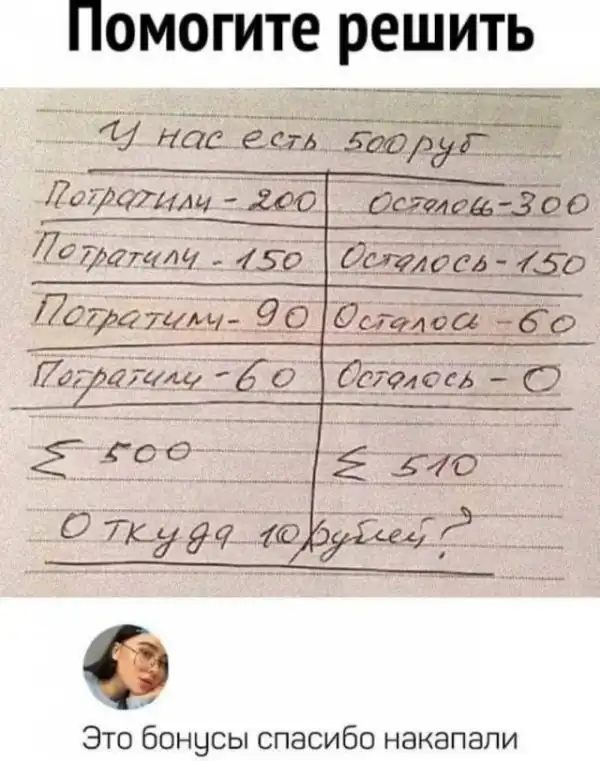 Помогите решить
У нас есть 500 руб
Потратили - 200 Осталось - 300
Потратили - 150 Осталось - 150
Потратили - 90 Осталось - 60
Потратили - 60 Осталось - 0
Σ 500 Σ 510
Откуда 10 рублей?
Это бонусы спасибо накапали